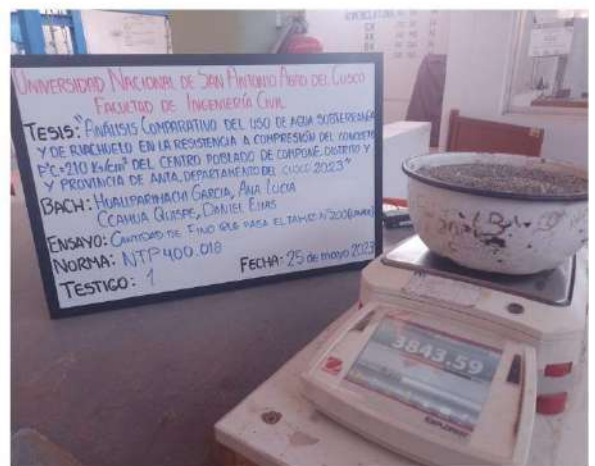 UNIVERSIDAD NACIONAL DE SAN ANTONIO ABAD DEL CUSCO
FACULTAD DE INGENIERÍA CIVIL
TESIS: "ANÁLISIS COMPARATIVO DEL USO DE AGUA SUBTERRÁNEA
Y DE RIACHUELO EN LA RESISTENCIA A COMPRESIÓN DEL CONCRETO
F'C=210 Kg/cm² DEL CENTRO POBLADO DE COMPONE, DISTRITO Y
PROVINCIA DE ANTA, DEPARTAMENTO DEL CUSCO 2023"
BACH: HUALLPARIMACHI GARCIA, ANA LUCIA
CCAHUA QUISPE, DANIEL ELIAS
ENSAYO: CANTIDAD DE FINO QUE PASA EL TAMIZ N°200
NORMA: NTP 400.018
FECHA: 25 de mayo 2023
TESTIGO: 1
3843.59
OHAUS
EXPLORER